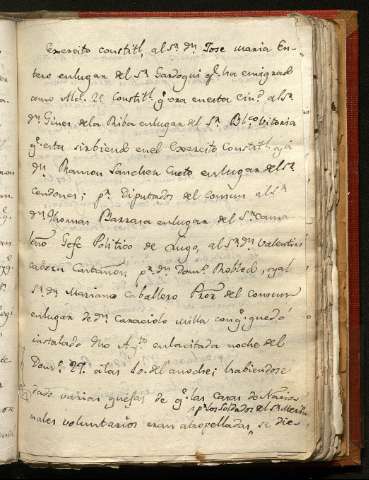 Exercito constitl. al Sr. Dn. Jose maria En-
tero enlugar del Sr. Gardoqui qe. ha emigrado
como Alce. 2º Constitl. qe. era enesta Ciud. al Sr.
Dn. Giner de la Riba enlugar del Sr. Vitoria
qe. esta sirbiendo en el Exercito Constitl. y al
Dn. Ramon Sanchez Cueto enlugar del Sr.
Cendones; pr. Diputados del comun al Sr.
Dn. Thomas Barrara enlugar del Sr.
Gefe Politico de Lugo, al Sr. Dn. Valentin
pr. Dn. Domo. Robted, y al
Sr. Dn. Mariano Caballero Pror. del comun
enlugar de Dn. Caraciolo Milla conqe. quedó
instalado dho Aytto. enlacitada noche del
Domo. 27. álas 10. del anoche; habiendose
dado varias quejas de qe. las casas de Nacio-
nales voluntarios eran atropelladas pr. los soldados del Sr. se die-